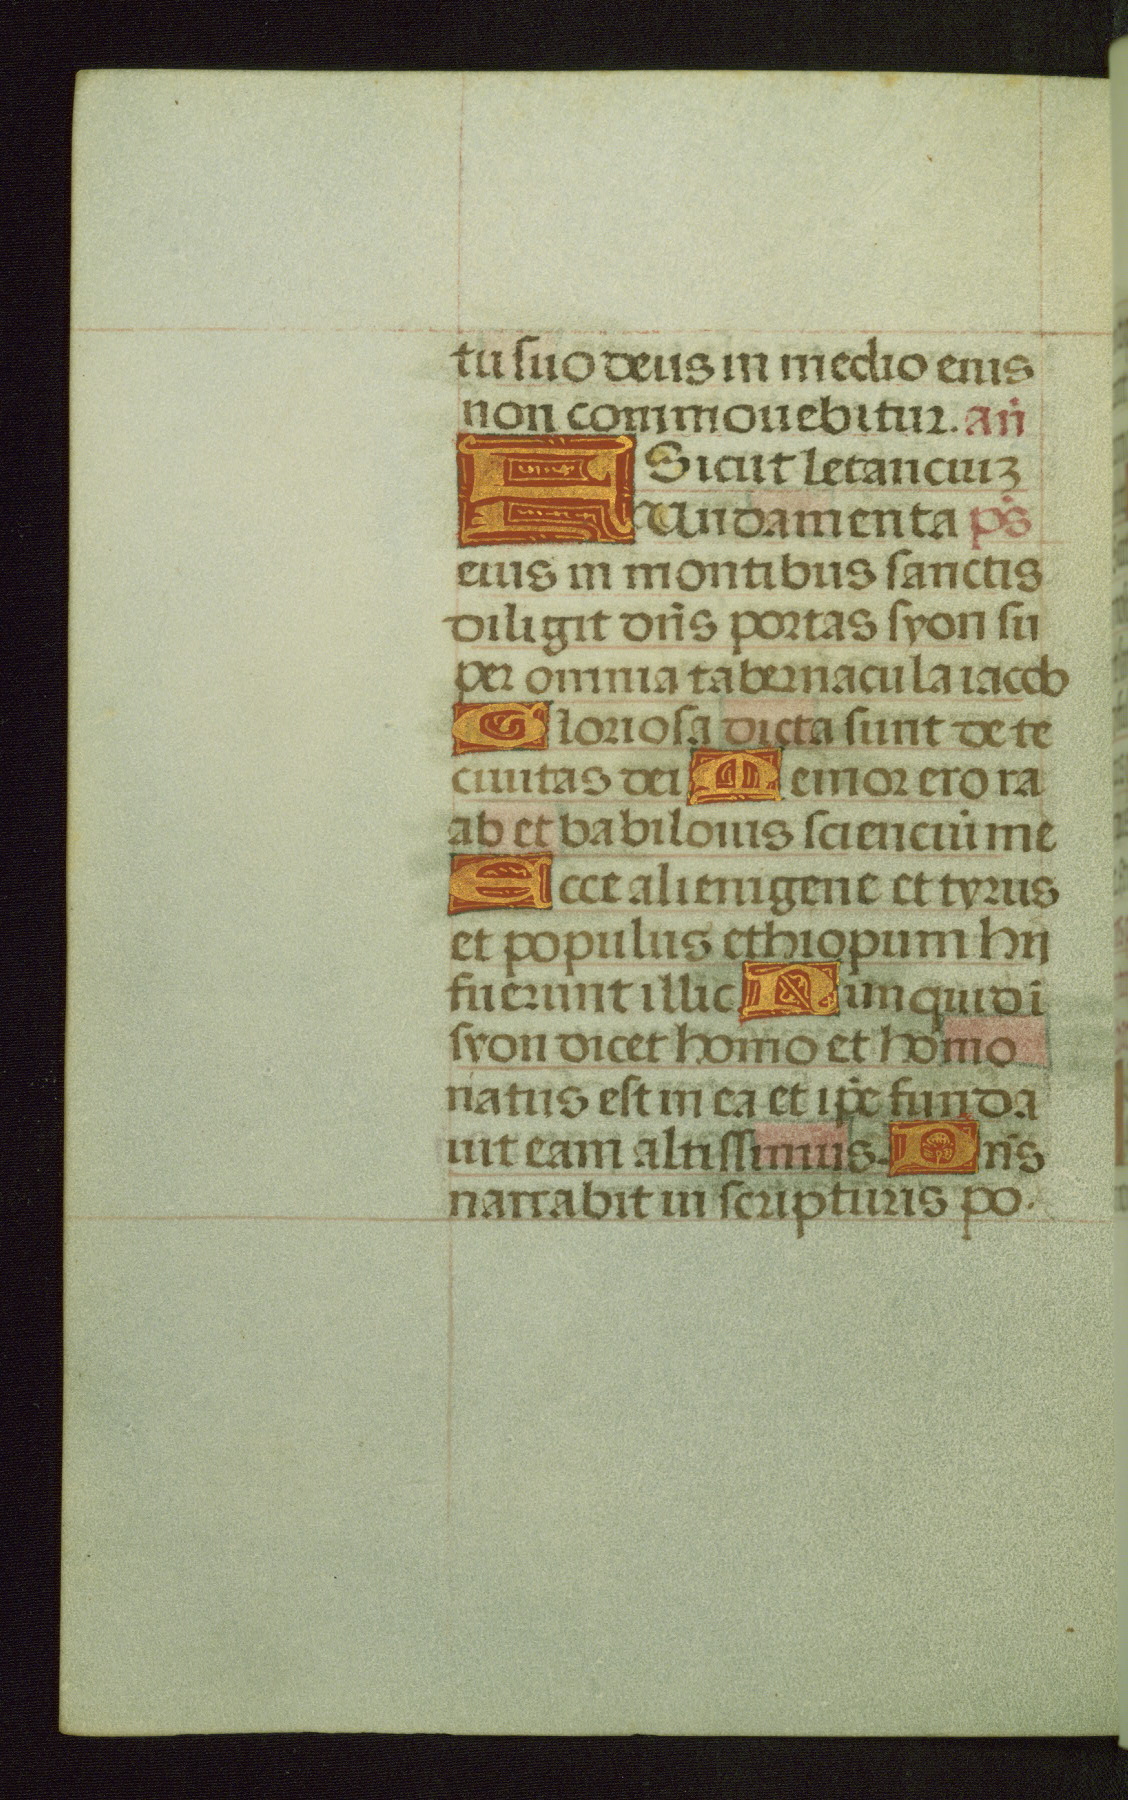 tu suo deus in medio eius
non commouebitur. an̄
Sicut letanciuz
Fundamenta ps̄
eius in montibus sanctis
diligit dn̄s portas syon su
per omnia tabernacula iacob
Gloriosa dicta sunt de te
ciuitas dei Memor ero ra
ab et babilonis scienciū me
Ecce alienigene et tyrus
et populus ethiopum hij
fuerunt illic Nunquid ī
syon dicet homo et homo
natus est in ea et ip̄e funda
uit eam altissimus. Dn̄s
narrabit in scripturis po.